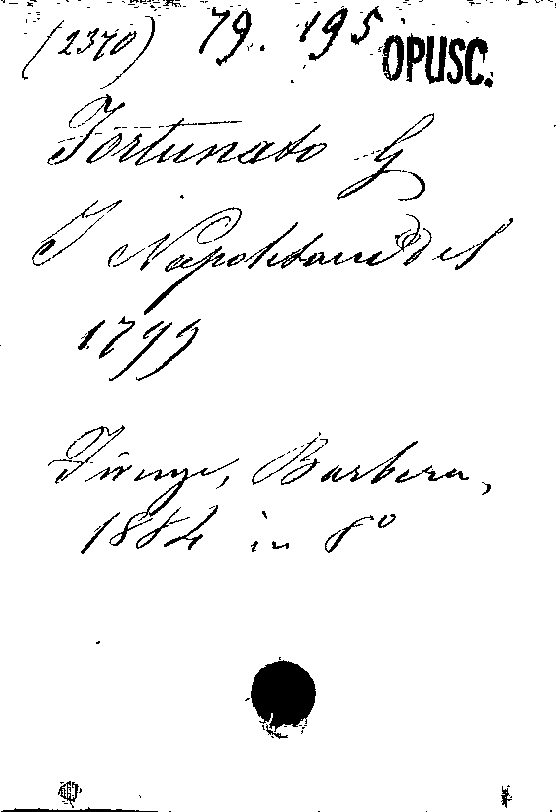 (2370) 79. 195 OPUSC.
Fortunato G
I Napoletani del
1799
Firenze, Barbera,
1884 in 8º